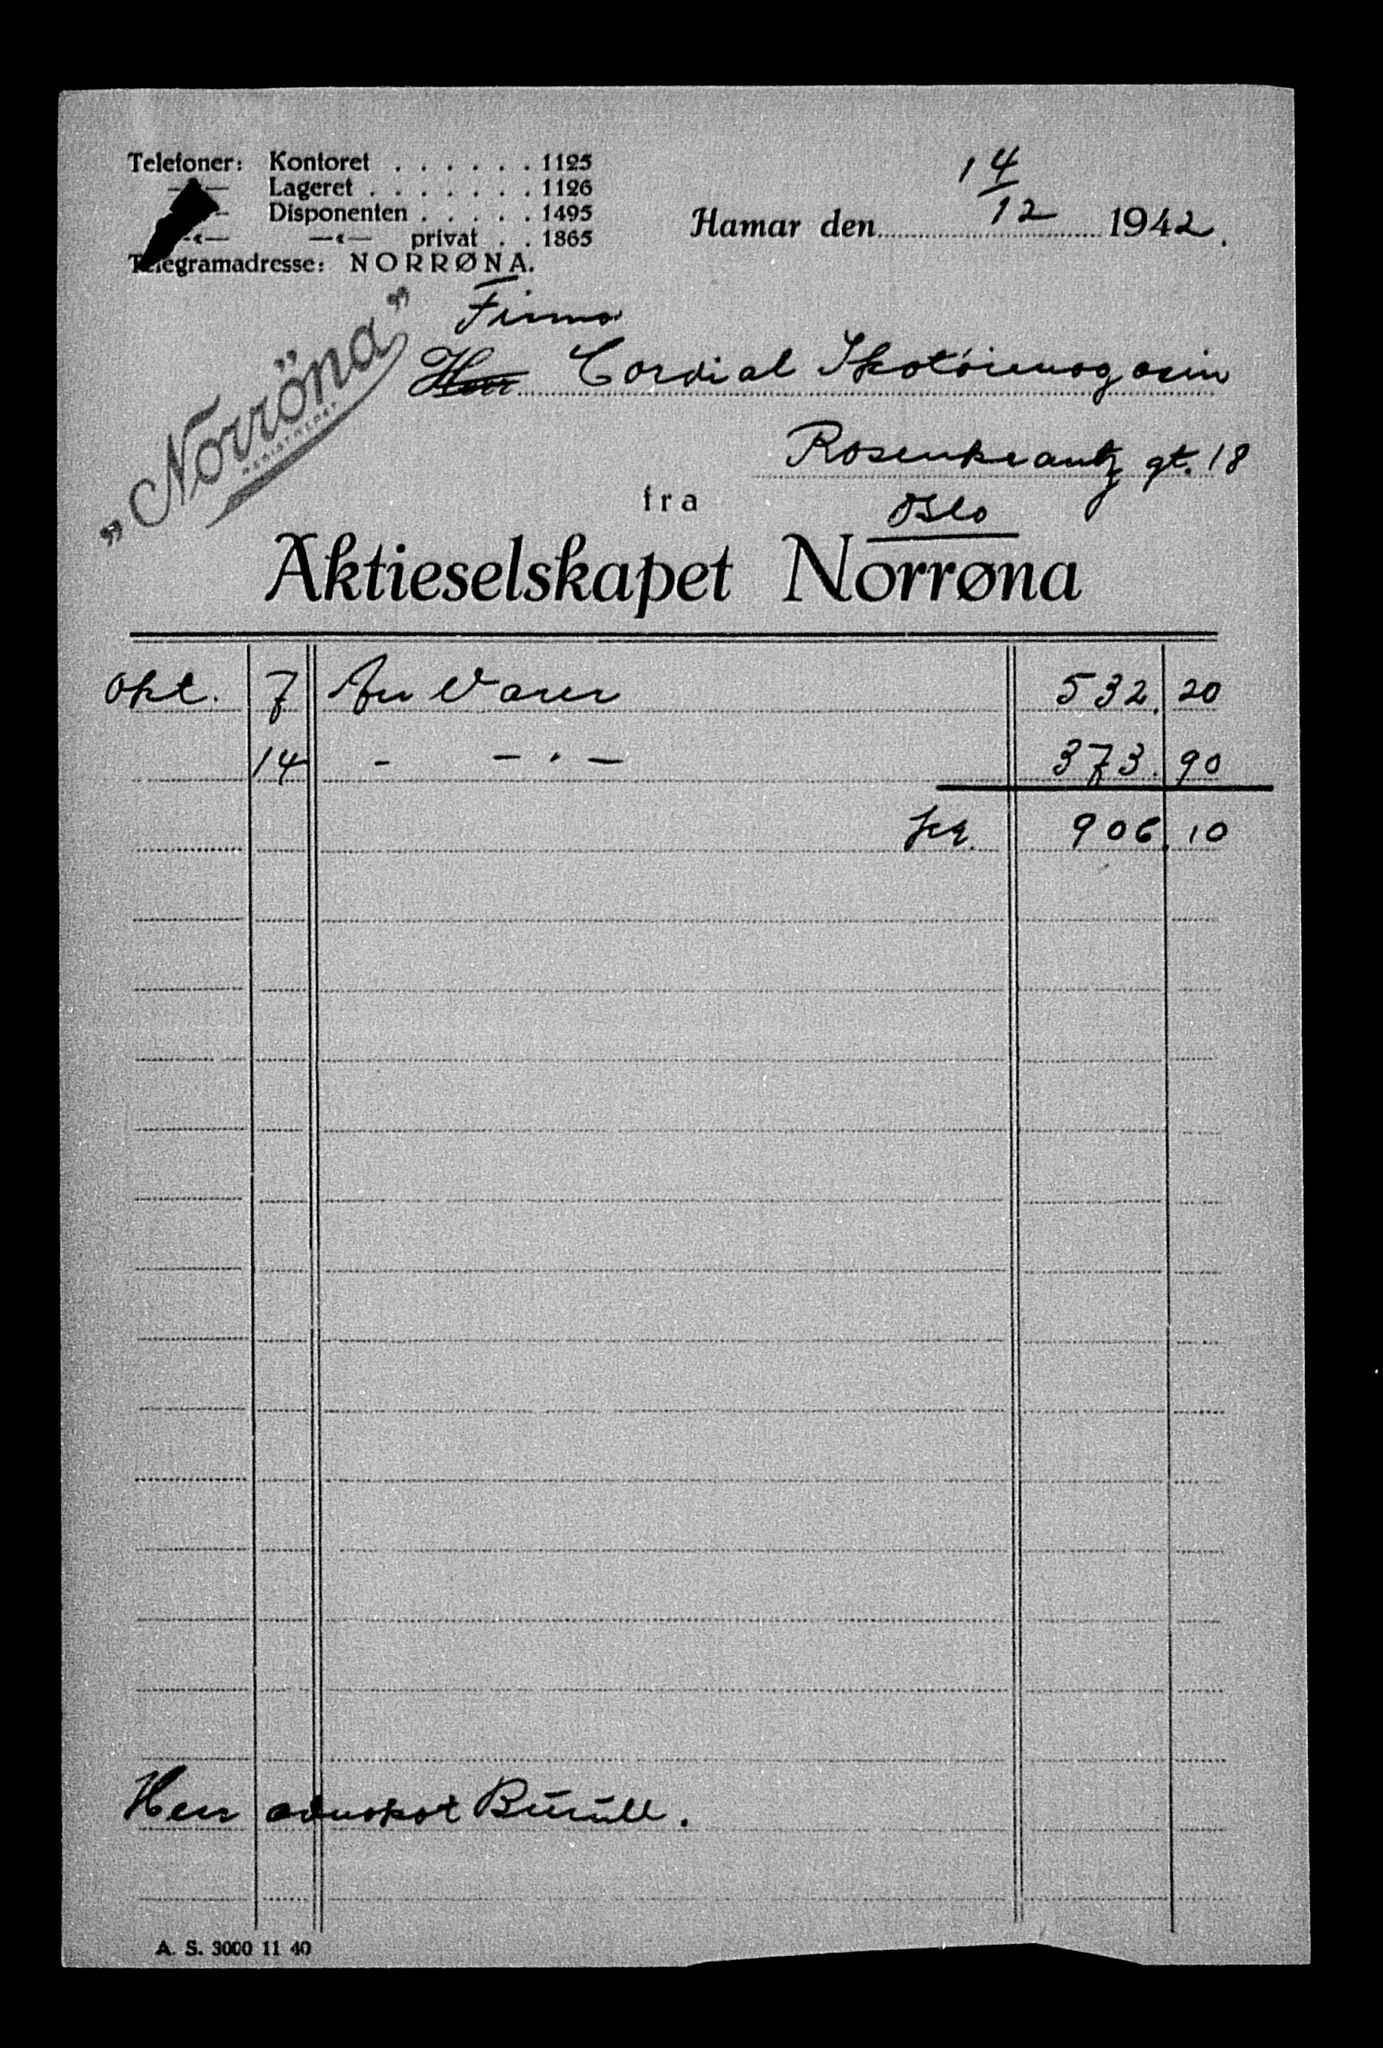 Telefoner: Kontoret . . . . . . 1125
—«— Lageret . . . . . . . 1126
Disponenten . . . . . 1495
—«— —«— privat . . 1865
Telegramadresse: NORRØNA.
14/12
Hamar den 1942.
Firma
„Norröna”
REGISTRERT
Herr Cordial Skotøimagasin
Rosenkrantz gt. 18
fra
Oslo
Aktieselskapet Norrøna
Okt. 7 An Varer 532.20
14 - - . - 373.90
kr. 906.10
Herr advokat
A. S. 3000 11 40